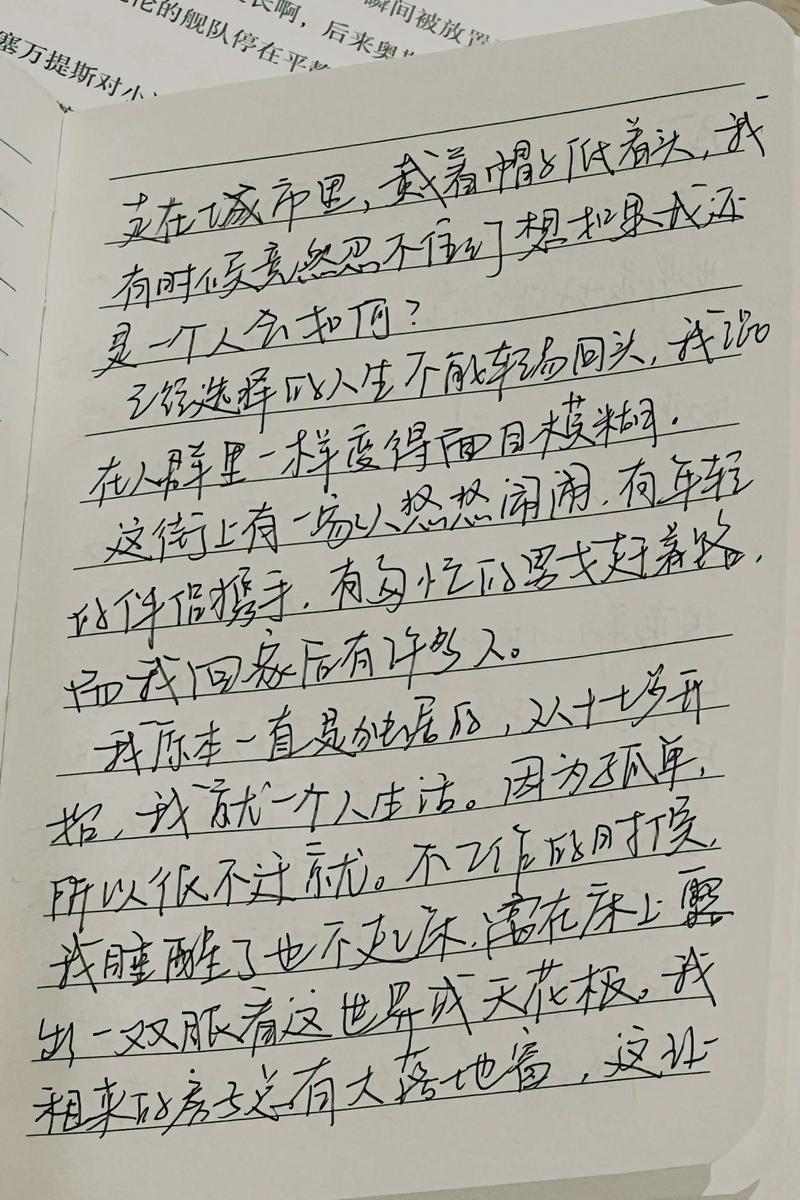 瞬间被放置
长啊，后来奥
伦的舰队停在平静
塞万提斯对小
走在城市里，戴着帽子低着头，我
有时候竟然忍不住幻想如果我还
是一个人会如何？
已经选择的人生不能轻易回头，我混
在人群里一样变得面目模糊．
这街上有一家人悠悠闹闹．有年轻
的伴侣携手．有匆忙的男女赶着路．
而我回家后有许多人。
我原本一直是独居的，从十七岁开
始，我就一个人生活。因为孤单．
所以很不迁就。不工作的时候．
我睡醒了也不起床．窝在床上露
出一双眼看这世界或天花板。我
租来的房子总有大落地窗，这让